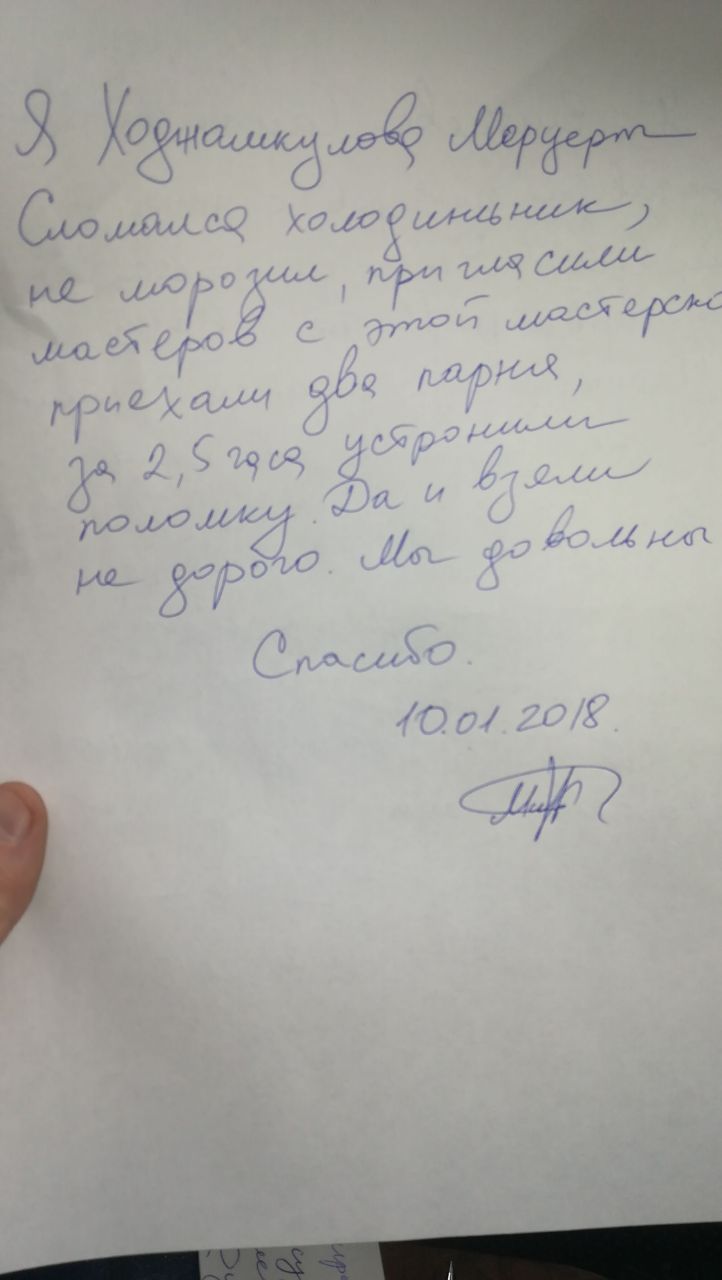 Я Ходжамкулова Меруерт
Сломался холодильник,
не морозил, пригласили
мастеров с этой мастерско
приехали два парня,
за 2,5 часа устронили
поломку. Да и взяли
не дорого. Мы довольны
Спасибо.
10.01.2018.